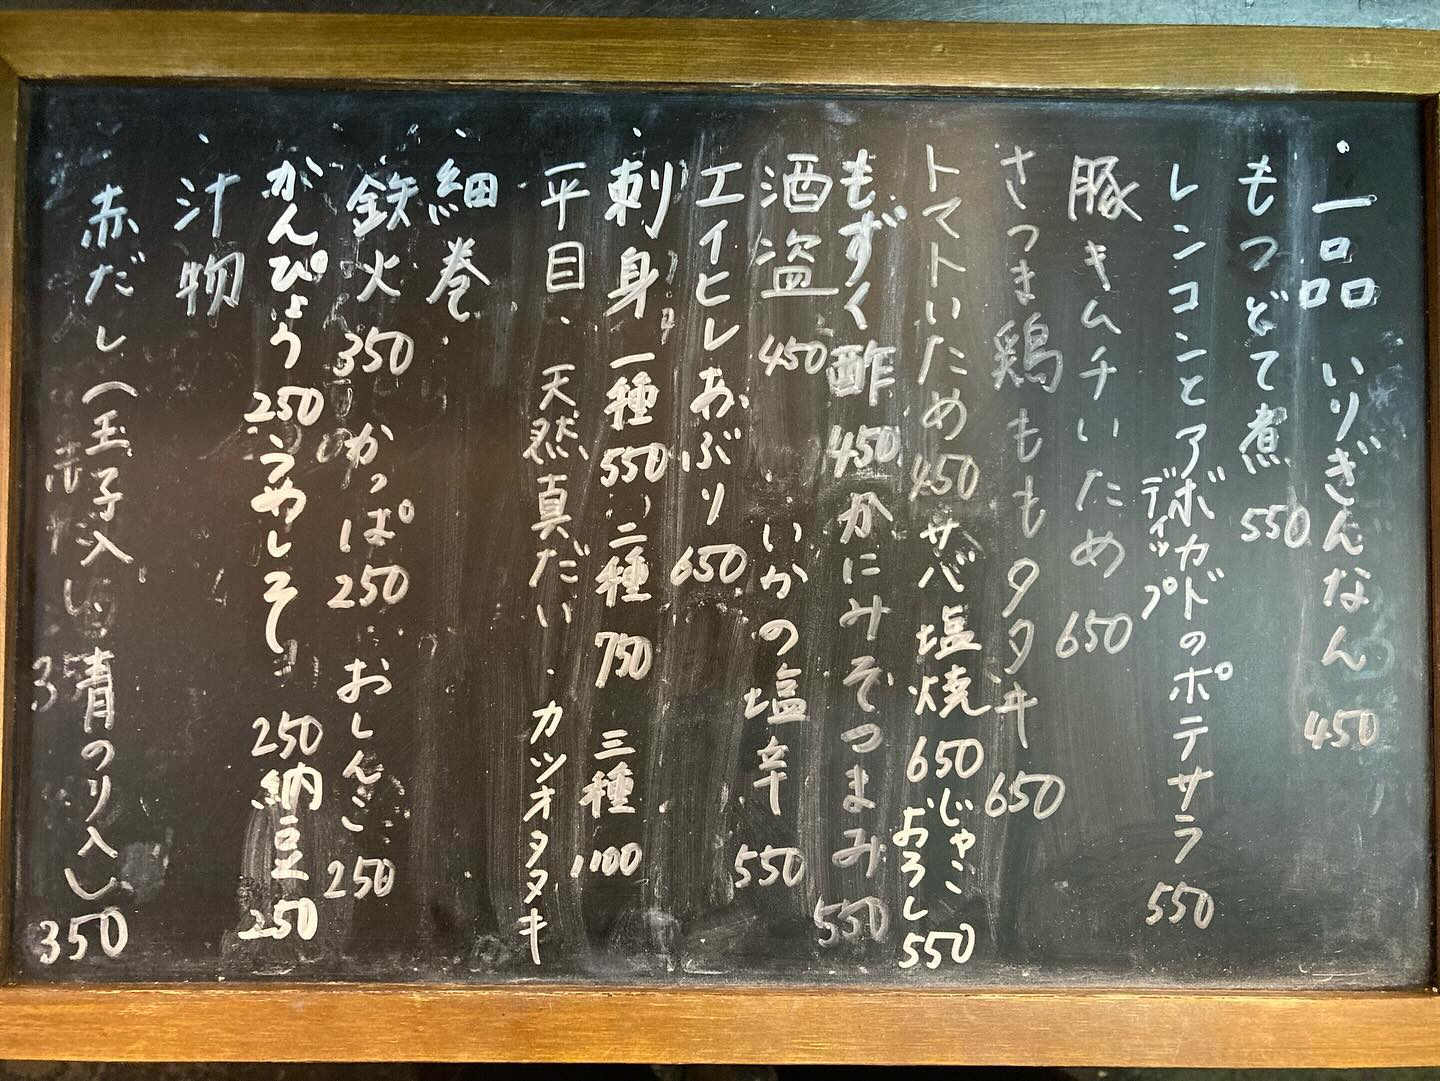 ・一品 いりぎんなん 450
もつどて煮 550
レンコンとアボカドのポテサラ 550
ディップ
豚キムチいため 650
さつま鶏ももタタキ 650
トマトいため 450 サバ塩焼 650 じゃこおろし 550
もずく酢 450 かにみそつまみ 550
酒盗 450 ・いかの塩辛 550
エイヒレあぶり 650
・刺身 一種 550 二種 750 三種 1100
平目・天然真だい・カツオタタキ
・細巻
鉄火 350 かっぱ 250 おしんこ 250
かんぴょう 250 うめしそ 250 納豆 250
・汁物
赤だし(玉子入り、青のり入り) 350